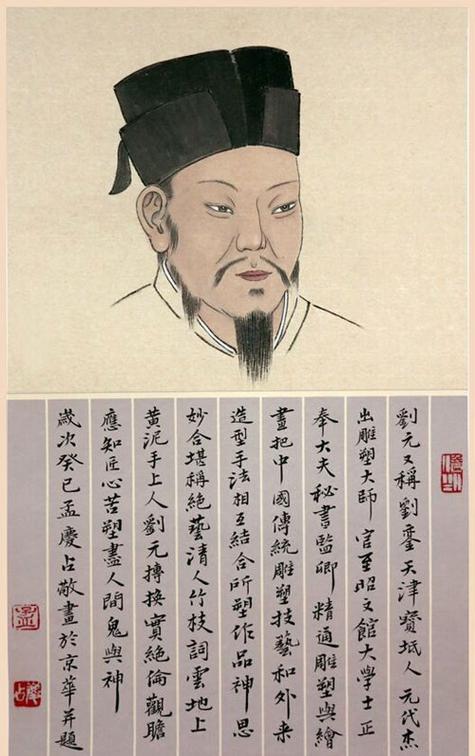 劉元又稱劉鑾天津寶坻人元代杰
出雕塑大師官至昭文館大學士正
奉大夫秘書監卿精通雕塑與繪
畫把中國傳統雕塑技藝和外来
造型手法相互結合所塑作品神思
妙合堪稱絕藝清人竹枝詞雲地上
黃泥手上人劉元摶換實絕倫觀瞻
應知匠心苦塑盡人間鬼與神
歲次癸巳孟慶占敬畫於京華并題